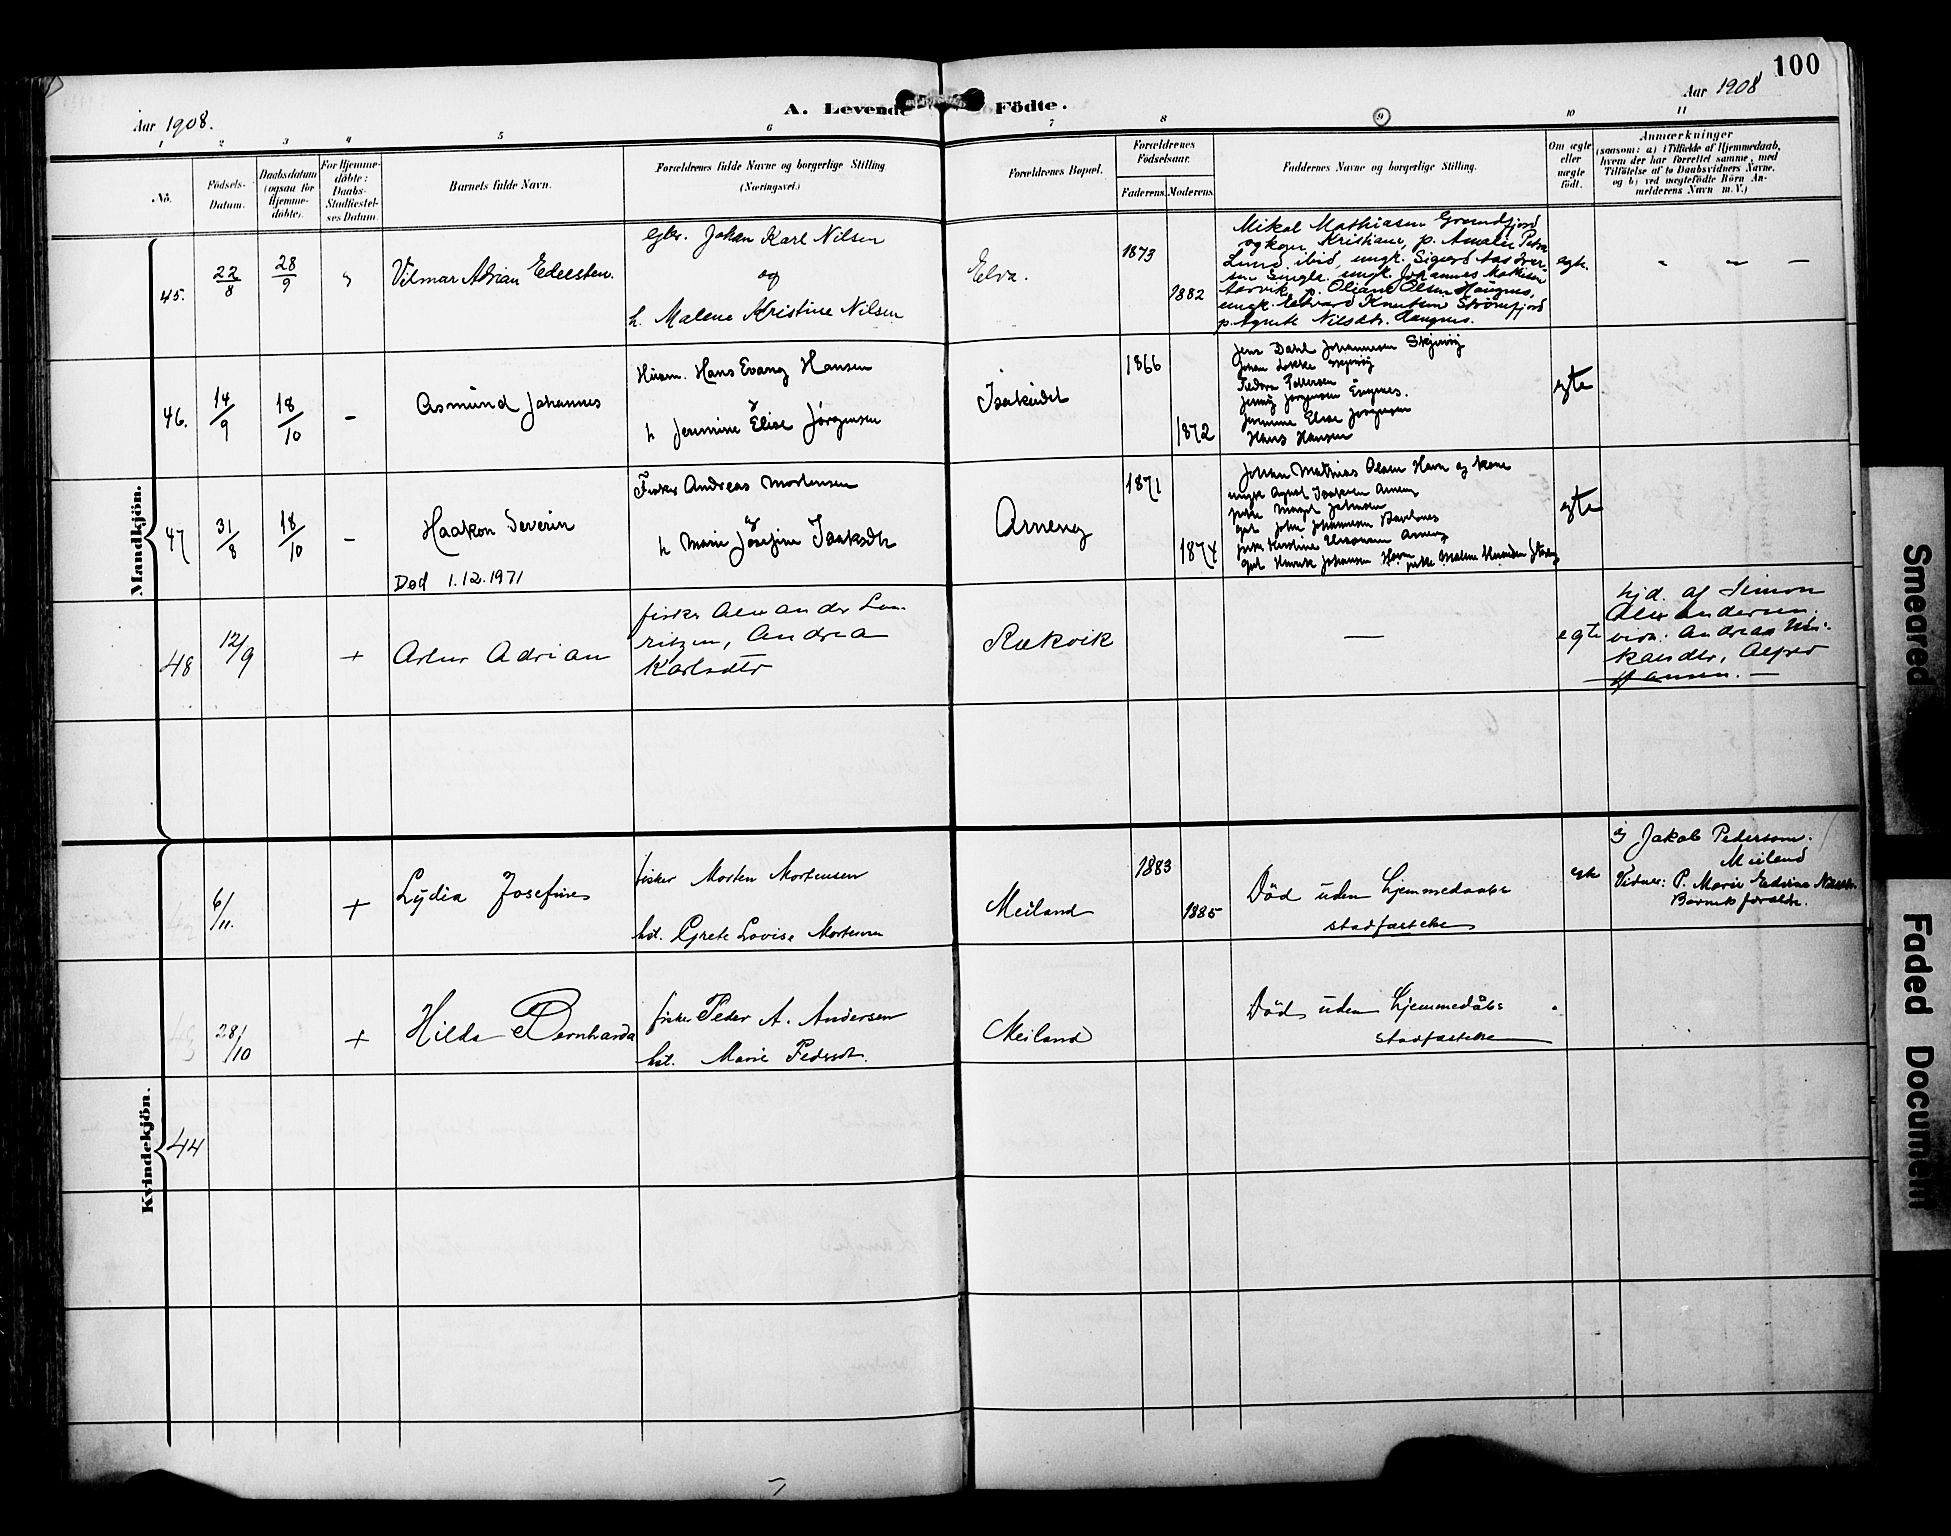 100
Aar 1908.
A. Levende Födte.
Aar 1908
1 2 3 4 5 6 7 8 9 10 11
No.
Födsels-
Datum.
Daabsdatum
(ogsaa för
Hjemme-
döbte).
For Hjemme-
döbte:
Daabs-
Stadfæstel-
ses Datum.
Barnets fulde Navn.
Forældrenes fulde Navne og borgerlige Stilling
(Næringsvei.)
Forældrenes Bopæl.
Forældrenes
Födselsaar.
Faderens. Moderens.
Faddernes Navne og borgerlige Stilling.
Om ægte
eller
uægte
født.
Anmærkninger
(saasom: a) i Tilfælde af Hjemmedaab,
hvem der har forrettet samme, med
Tilföielse af to Daabsvidners Navne,
og b) ved uægtefödte Börn An-
melderens Navn m. V.)
Mandkjön.
45.
22/8
28/9
Vilmar Adrian Edeesten.
Johan Karl Nilsen
og
h. Malene Kristine Nilsen
Elva.
1873
1882
Mikal Mathiasen Grundfjord
og kone Kristiane, p. Amalie Petra
Lund ibid, ungk. Sigurd
ungk. Johannes
p. Oliane Olsen Haugnes,
ungk. Edvard Knutsen Strømfjord
p. Agnete Nilsdtr. Haugnes.
egte.
" " —
46.
14/9
18/10
-
Asmund Johannes
Husm. Hans Evang Hansen
og
h Jenmine Elise Jørgensen
1866
1872
Jens Dahl Johannesen Skjervøy
Johan Løkke Skjervøy
Fedora Pettersen
Jenny Jørgensen
Jenmine Elise Jørgensen
Hans Hansen
egte
47
31/8
18/10
-
Haakon Severin
Død 1.12.1971
Fisker Andreas Mortensen
og
h Marie Josefine Isaksdtr
Arneng
1871
1874
Johan Mathias Olsen Havn og kone
ungk Isaksen Arneng
pike
gut John Johannesen
pike Kirstine Arneng
gut Henrik Johansen Havn pike Malene
egte
48
12/9
+
Artur Adrian
fisker Alexander Lau-
ritzen, Andrea
Karlsdtr
Rækvik
—
egte
hjd. af Simon
Alexandersen.
vidn: Andrea
Alfred
Hansen. —
Kvindekjön.
6/11.
+
Lydia Josefine
fisker Morten Mortensen
hst. Grete Lovise Mortensen
Meiland
1883
1885
Död uden hjemmedaabs
stadfæstelse
egte
af Jakob Pedersen.
Meiland
Vidner: P. Marie Edvine
Barnets forældre.
28/10
+
Hilda Bernharda
fisker Peder A. Andersen
hst. Marie Pedersdt.
Meiland
Död uden hjemmedåbs
stadfæstelse
44
Smeared
Faded Document